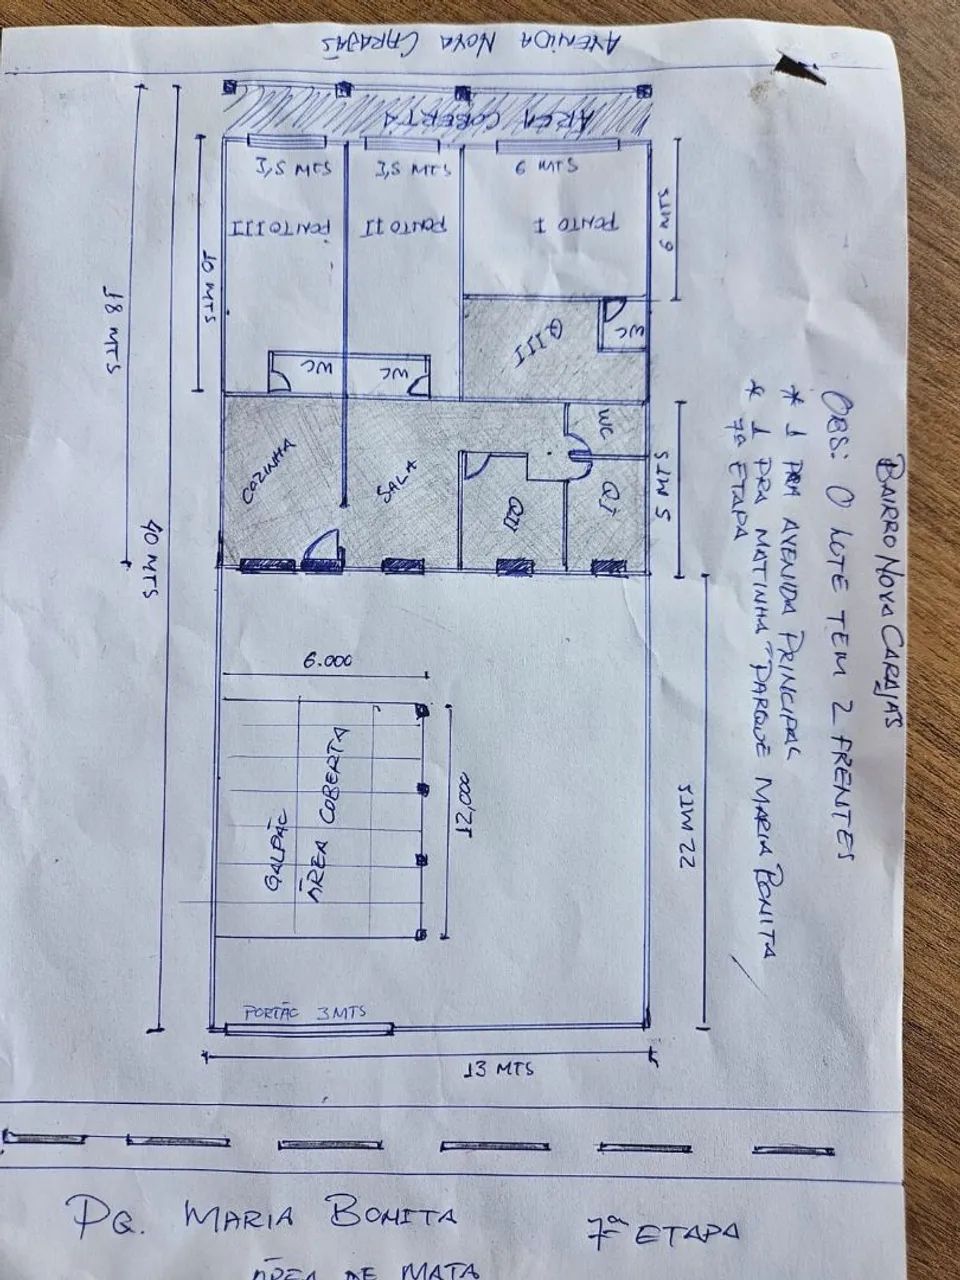 AVENIDA NOVA CARAJÁS
AREA COBERTA
1,5 MTS
1,5 MTS
PONTO III
PONTO II
PONTO I
6 MTS
10 MTS
18 MTS
40 MTS
WC
WC
QIII
WC
COZINHA
SALA
WC
QII
QI
5 MTS
22 MTS
6.000
12,000
GALPÃO
ÁREA COBERTA
PORTÃO 3 MTS
13 MTS
BAIRRO NOVA CARAJAS
OBS: O LOTE TEM 2 FRENTES
* 1 PRA AVENIDA PRINCIPAL
* 1 PRA MATINHA "PARQUE MARIA BONITA
7ª ETAPA
PQ. MARIA BONITA
7ª ETAPA
ÁREA DE MATA